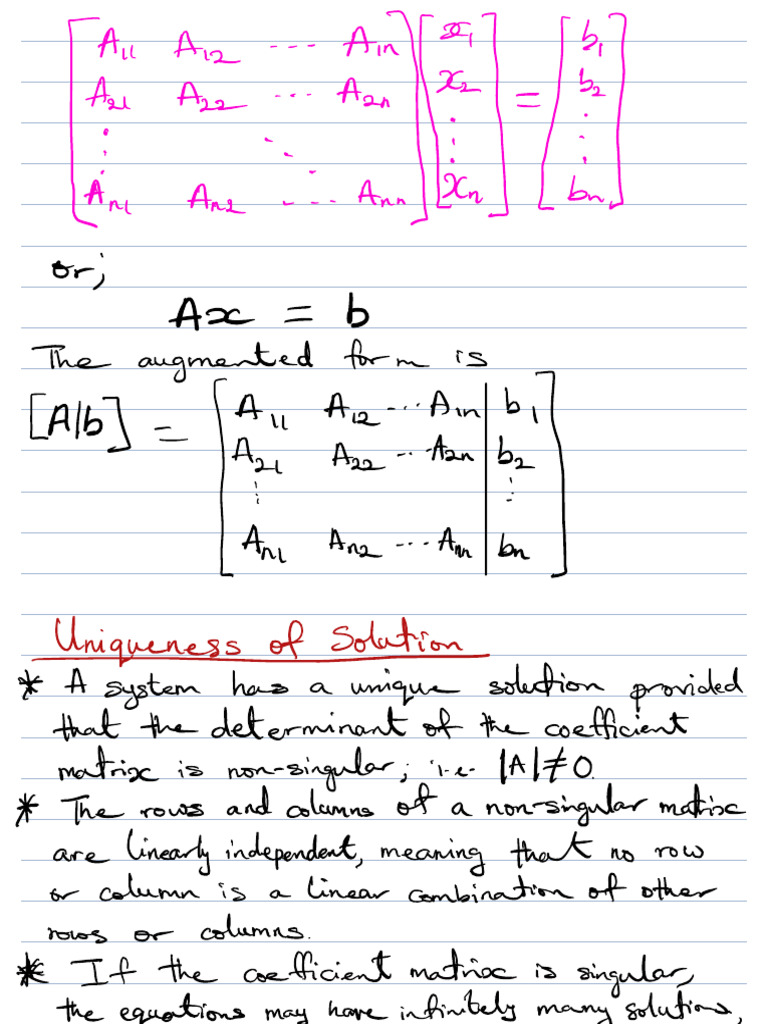 [A₁₁ A₁₂ ... A₁ₙ] [x₁] = [b₁]
[A₂₁ A₂₂ ... A₂ₙ] [x₂] = [b₂]
⋮ ⋱ ⋮ ⋮
[Aₙ₁ Aₙ₂ ... Aₙₙ] [xₙ] = [bₙ]
or;
Ax = b
The augmented form is
[A|b] = [A₁₁ A₁₂ ... A₁ₙ | b₁]
[A₂₁ A₂₂ ... A₂ₙ | b₂]
⋮ ⋮
[Aₙ₁ Aₙ₂ ... Aₙₙ | bₙ]
Uniqueness of Solution
* A system has a unique solution provided
that the determinant of the coefficient
matrix is non-singular; i.e. |A|≠0.
* The rows and columns of a non-singular matrix
are linearly independent, meaning that no row
or column is a linear combination of other
rows or columns.
* If the coefficient matrix is singular,
the equations may have infinitely many solutions,